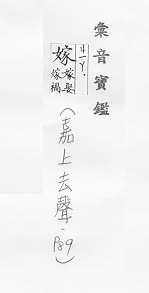 彙音寶鑑
ㄐㄧㄚˋ
嫁
嫁娶
嫁禍
(嘉上去聲·P89)